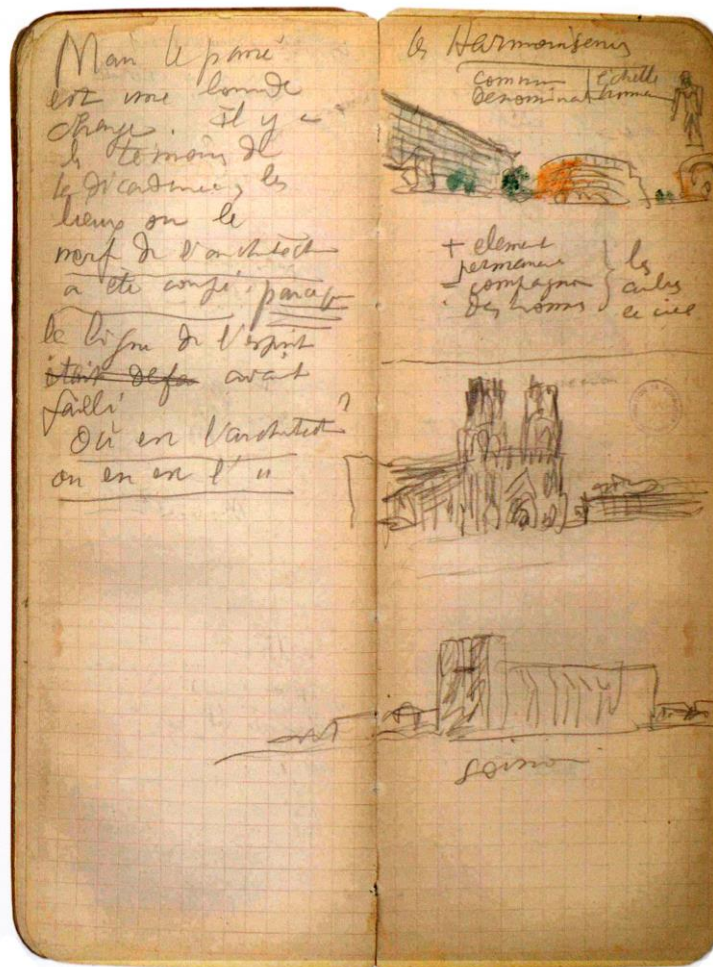 Mais le passé
est une lourde
charge. Il y a
les témoins de
la décadence, les
lieux où le
nerf de l'architect
a été coupé, parce que
la ligne de l'esprit
était de fer avait
failli
Où en l'architect ?
ou en en l' "
les Harmoniseurs
commun
dénominat
échelle
humaine
+ element
permanent
- compagnon
des hommes
les
arbres
le ciel